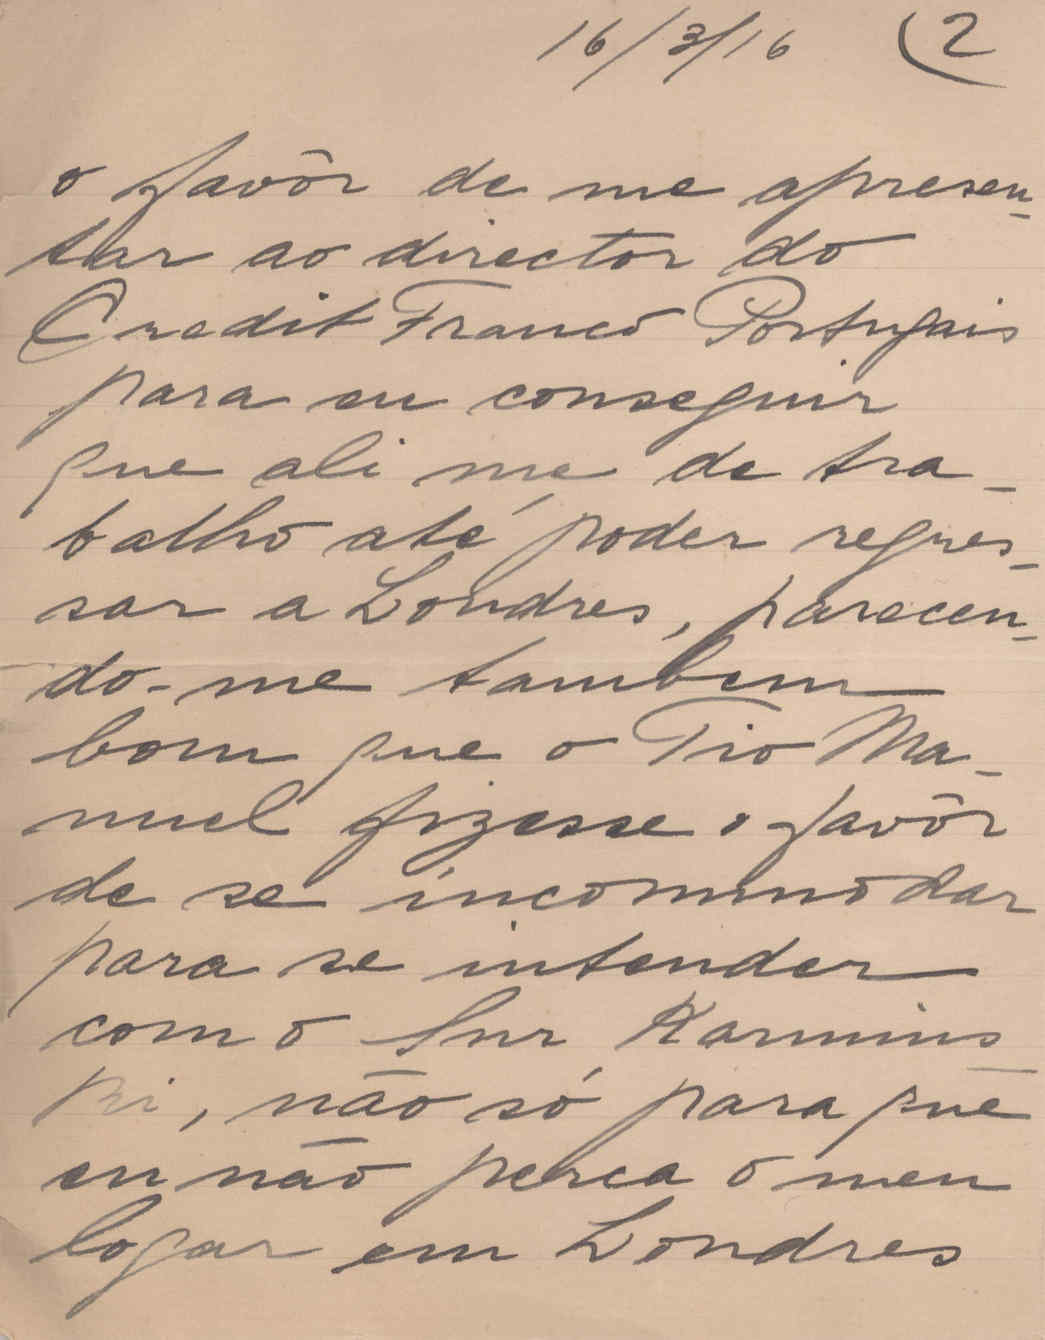 16/3/16 (2
o favôr de me apresen-
tar ao director do
Credit Franco Portugais
para eu conseguir
que ali me de tra-
balho até poder regres-
sar a Londres, parecen-
do-me tambem
bom que o Tio Ma-
nuel fizesse o favôr
de se incommodar
para se intender
com o Snr Karmins-
ki, não só para que
eu não perca o meu
logar em Londres